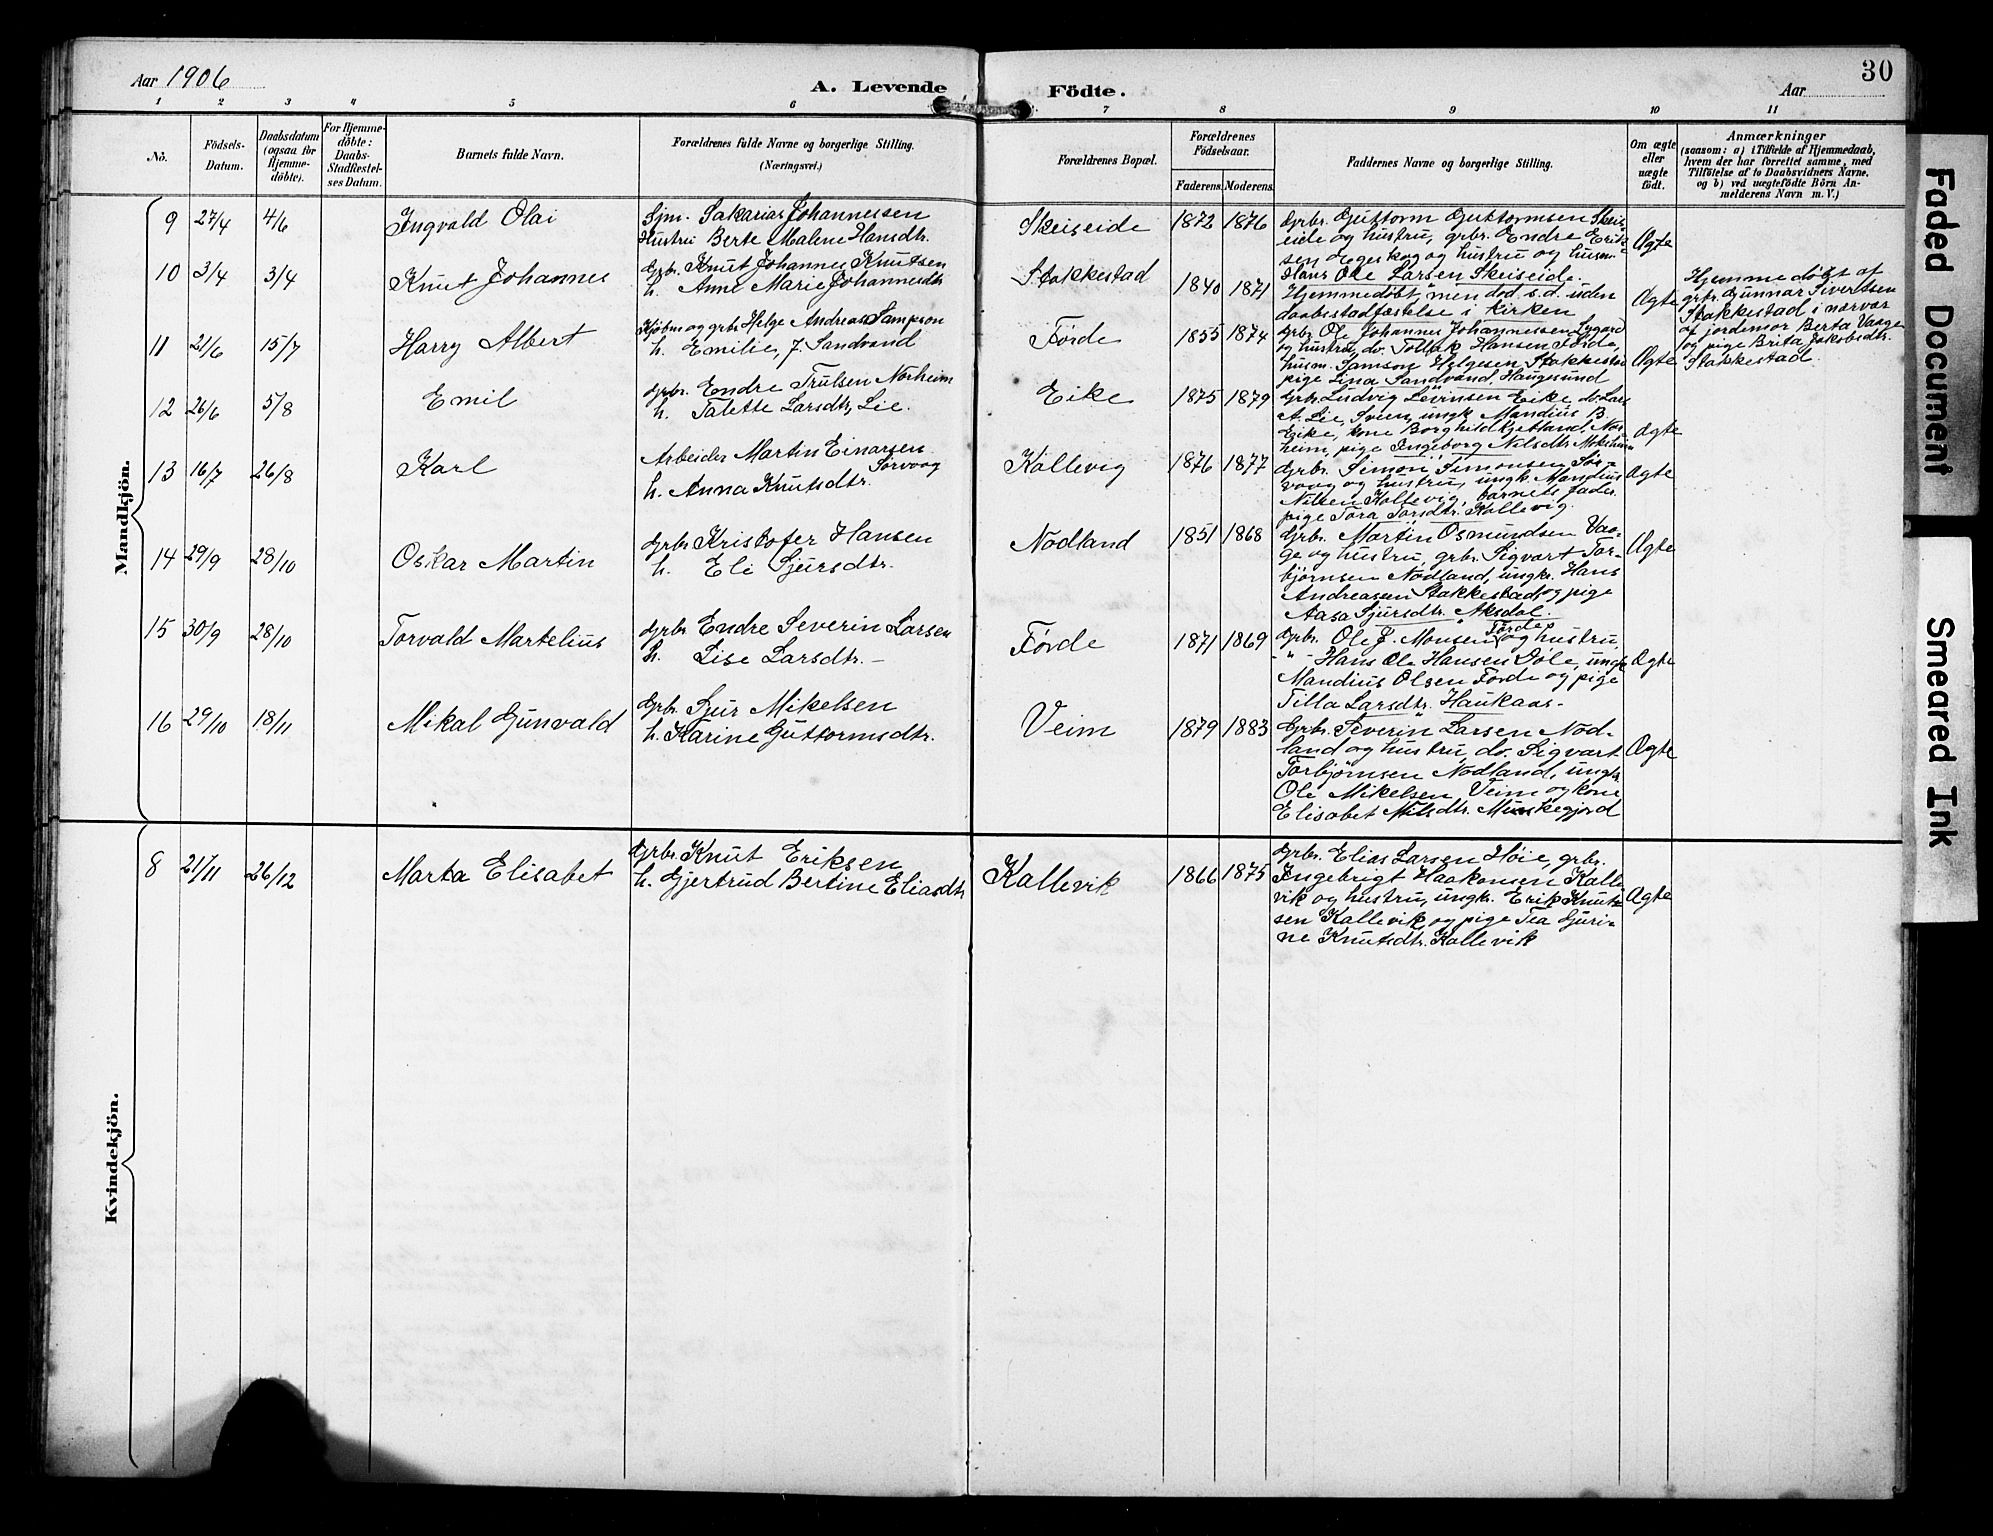 Aar 1906
A. Levende Födte.
Aar
30
1 2 3 4 5 6 7 8 9 10 11
No.
Födsels-Datum.
Daabsdatum (ogsaa for Hjemme-döbte).
For Hjemme-döbte: Daabs-Stadfæstel-ses Datum.
Barnets fulde Navn.
Forældrenes fulde Navne og borgerlige Stilling. (Næringsvei.)
Forældrenes Bopæl.
Forældrenes Födselsaar.
Faderens. Moderens.
Faddernes Navne og borgerlige Stilling.
Om ægte eller uægte födt.
Anmærkninger
(saasom: a) i Tilfælde af Hjemmedaab,
hvem der har forrettet samme, med
Tilföielse af to Daabsvidners Navne.
og b) ved uægtefödte Börn An-
melderens Navn m. V.)
Mandkjön.
9 27/4 4/6 Ingvald Olai
Sjm. Sakarias Johannessen
Hustru Berte Malene Hansdtr.
Skeiseide 1872 1876
Grbr. Guttorm Guttormsen Skeis-
eide og hustru, grbr. Endre Erik-
senÆgeskog og hustru og husm.
Hans Ole Larsen Skeiseide.
Ægte
10 3/4 3/4 Knut Johannes
Grbr. Knut Johannes Knutsen
h. Anne Marie Johannesdtr.
Stakkestad 1840 1871
Hjemmedøbt men død s.d. uden
daabsstadfæstelse i kirken
Ægte
Hjemmedøbt af
grbr. Gunnar Sivertsen
Stakkestad i nærvær
af jordemor Berta Vaage
og pige Brita Jakobsdtr.
Stakkestad.
11 21/6 15/7 Harry Albert
Kjøbm og grbr Helge Andreas Sampson
h. Emilie, f. Sandvand
Førde 1855 1874
Grbr Ole Johannes Johannessen Lygard
og hustru, do. Tollak Hansen Førde,
husm. Samson Helgesen Stakkestad
pige Lina Sandvand, Haugesund
Ægte
12 26/6 5/8 Emil
Grbr. Endre Trulsen Norheim
h. Talette Larsdtr, Lie.
Eike 1875 1879
Grbr. Ludvig Levinsen Eike, do Lars
A. Lie, Sveen, ungk Mandius B.
Eike, kone Borghild Kjetland, Nor-
heim, pige Ingeborg Nilsdtr.
Ægte
13 16/7 26/8 Karl
Arbeider Martin Einarsen
Sørvaag
h. Anna Knutsdtr.
Kallevig 1876 1877
Grbr. Simon Simonsen Sør-
vaag og hustru, ungk. Mandius
Nilsen Kallevig, barnets fader.
pige Tora Torsdtr. Kallevig.
Ægte
14 29/9 28/10 Oskar Martin
Grbr Kristofer Hansen
h. Eli Sjursdtr.
Nodland 1851 1868
Grbr. Martin Osmundsen Vaa-
ge og hustru, grbr. Sigvart Tor-
bjørnsen Nodland, ungk. Hans
Andreasen Stakkestad og pige
Aasa Sjursdtr. Aksdal.
Ægte
15 30/9 28/10 Torvald Martelius
Grbr Endre Severin Larsen
h. Lise Larsdtr.-
Førde 1871 1869
Grbr. Ole J. Monsen Førde og hustru,
- " - Hans Ole Hansen Døle, ungk
Mandius Olsen Førde og pige
Tilla Larsdtr. Haukaas-
Ægte
16 29/10 18/11 Mikal Gunvald
Grbr. Sjur Mikelsen
h. Karine Guttormsdtr.
Veim 1879 1883
Grbr. Severin Larsen Nod-
land og hustru, do. Sigvart
Torbjørnsen Nodland, ungk.
Ole Mikelsen Veim og kone
Elisabet Nilsdtr. Munkegjord
Ægte
Kvindekjön.
8 21/11 26/12 Marta Elisabet
Grbr. Knut Eriksen
h. Gjertrud Bertine Eliasdtr
Kallevik 1866 1875
Grbr. Elias Larsen Høie, grbr.
Ingebrigt Haakonsen Kalle-
vik og hustru, ungk. Erik Knut-
sen Kallevik og pige Tea Sjuri-
ne Knutsdtr. Kallevik
Ægte
Faded Document
Smeared Ink